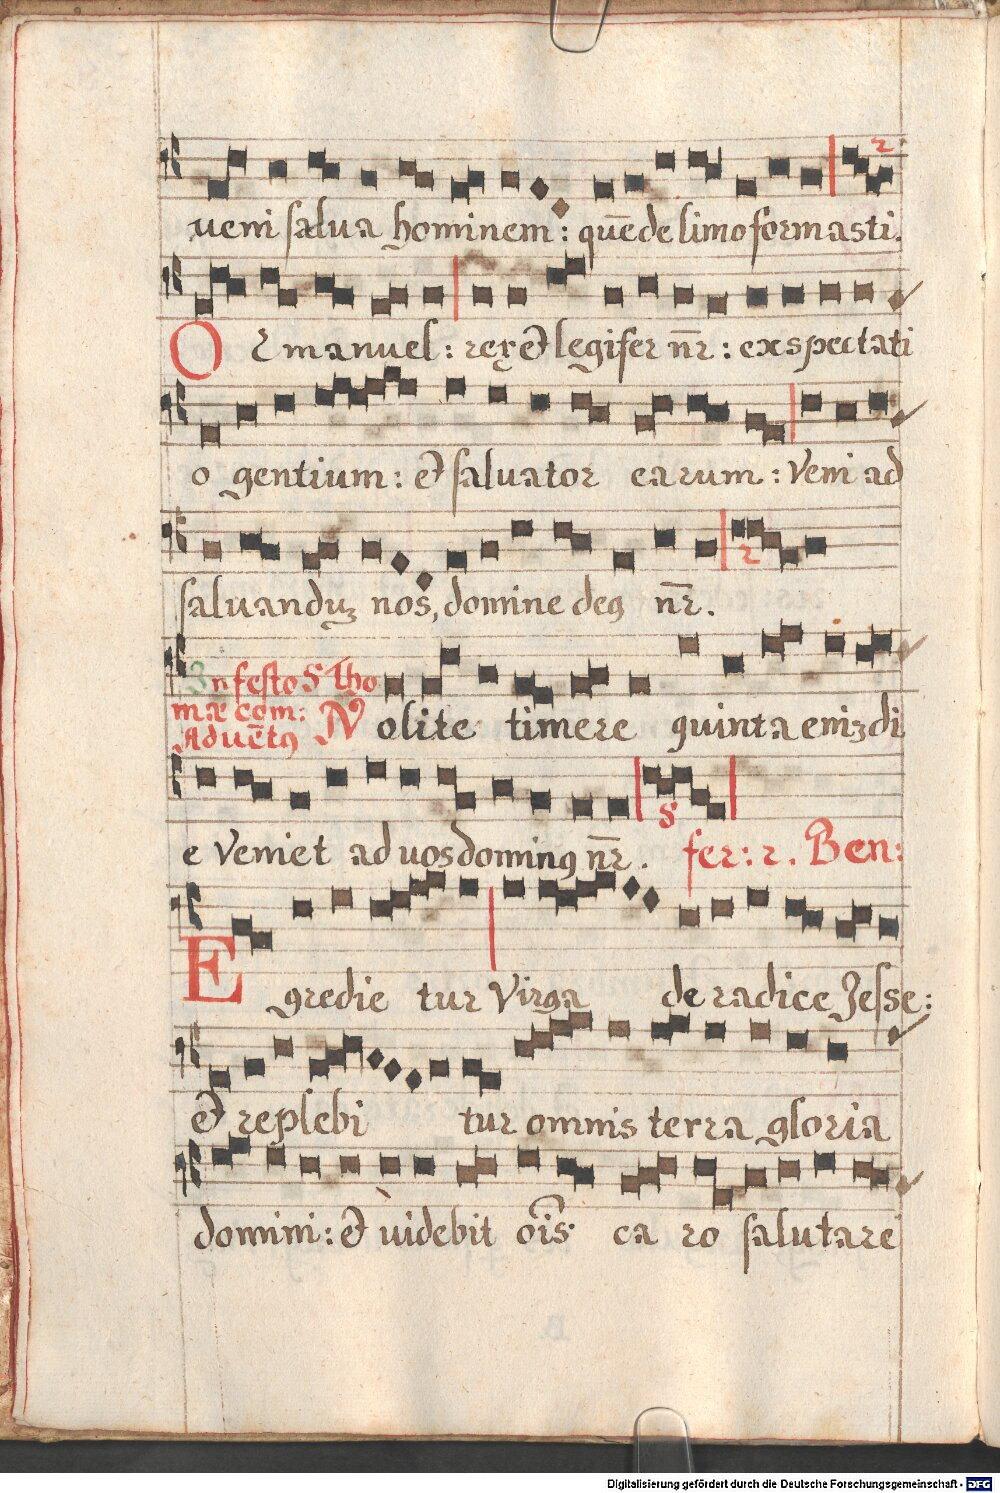 2
veni salva hominem: quē de limo formasti.
O Emanuel: rex et legifer nr̄: exspectati
o gentium: et salvator earum: Veni ad
2
salvanduʒ nos, domine deꝯ nr̄.
In festo S Tho
mæ com:
Advētꝯ Nolite timere quinta eniʒ di
s
e Veniet ad vos dominꝯ nr̄. fer: 2. Ben:
Egredietur Virga de radice Jesse:
et replebitur omnis terra gloria
domini: et videbit oīs caro salutare
Digitalisierung gefördert durch die Deutsche Forschungsgemeinschaft - DFG